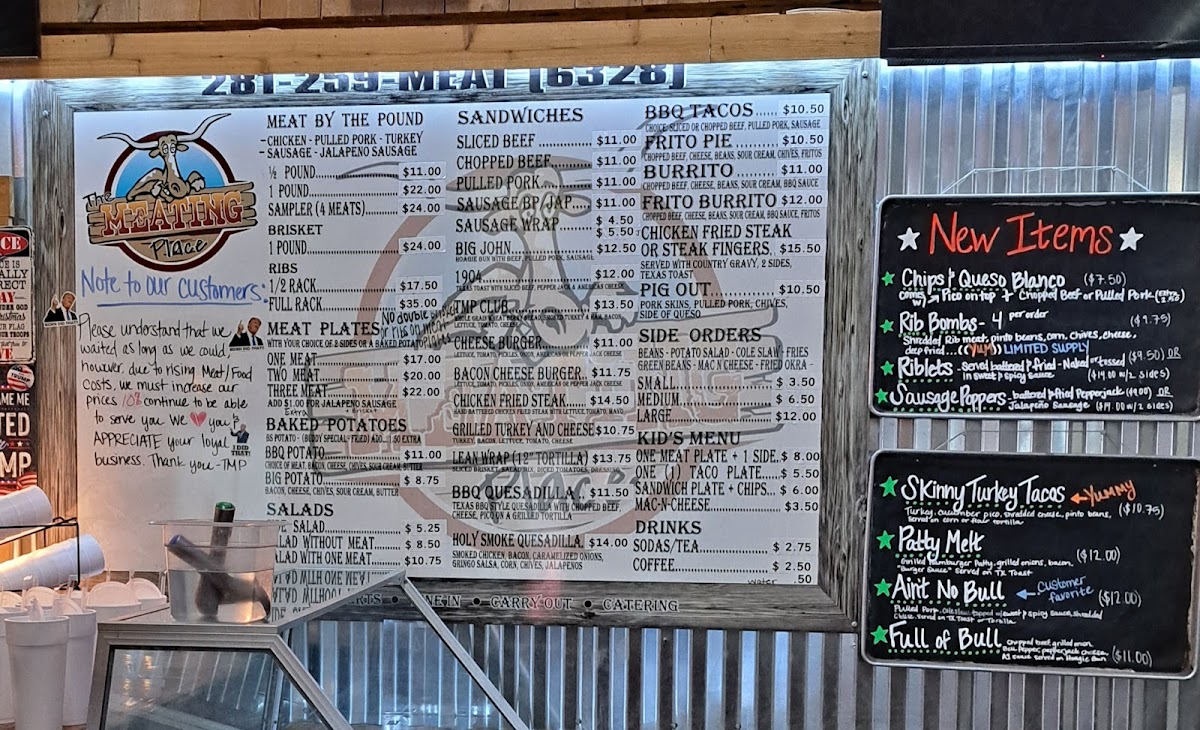 281-259-MEAT (6328)
The
MEATING
Place
Note to our customers:
Please understand that we
waited as long as we could,
however, due to rising Meat/Food
costs, we must increase our
prices 10% continue to be able
to serve you. We ❤ you &
APPRECIATE your loyal
business. Thank you -TMP
I DID
THAT!
MEAT BY THE POUND
-CHICKEN - PULLED PORK - TURKEY
- SAUSAGE - JALAPENO SAUSAGE
½ POUND $11.00
1 POUND $22.00
SAMPLER (4 MEATS) $24.00
BRISKET
1 POUND $24.00
RIBS
1/2 RACK $17.50
FULL RACK $35.00
No double
or ribs on meat
MEAT PLATES
WITH YOUR CHOICE OF 2 SIDES OR A BAKED POTATO
ONE MEAT $17.00
TWO MEAT $20.00
THREE MEAT $22.00
ADD $1.00 FOR JALAPENO SAUSAGE
Extra
BAKED POTATOES
BS POTATO - (BUDDY SPECIAL - FRIED) ADD...1.50 EXTRA
BBQ POTATO $11.00
CHOICE OF MEAT, BACON, CHEESE, CHIVES, SOUR CREAM, BUTTER
BIG POTATO $8.75
BACON, CHEESE, CHIVES, SOUR CREAM, BUTTER
SALADS
SALAD $ 5.25
SALAD WITHOUT MEAT $ 8.50
SALAD WITH ONE MEAT $10.75
SANDWICHES
SLICED BEEF $11.00
CHOPPED BEEF $11.00
PULLED PORK $11.00
SAUSAGE BP/JAP $11.00
SAUSAGE WRAP $ 4.50
$ 5.50
BIG JOHN $12.50
HOAGIE BUN WITH BEEF, PULLED PORK, SAUSAGE
1904 $12.00
TEXAS TOAST WITH SLICED BEEF, PEPPER JACK & AMERICAN CHEESE
TMP CLUB $13.50
LETTUCE, TOMATO, CHEESE
CHEESE BURGER $11.00
LETTUCE, TOMATO, PICKLES, ONION, AMERICAN OR PEPPER JACK CHEESE
BACON CHEESE BURGER $11.75
LETTUCE, TOMATO, PICKLES, ONION, AMERICAN OR PEPPER JACK CHEESE
CHICKEN FRIED STEAK $14.50
HAND BATTERED CHICKEN FRIED STEAK WITH LETTUCE, TOMATO, MAYO
GRILLED TURKEY AND CHEESE $10.75
TURKEY, BACON, LETTUCE, TOMATO, CHEESE
LEAN WRAP (12" TORTILLA) $13.75
SLICED BRISKET, SALAD MIX, DICED TOMATOES, DRESSING
BBQ QUESADILLA $11.50
TEXAS BBQ STYLE QUESADILLA WITH CHOPPED BEEF,
CHEESE, PICO ON A GRILLED TORTILLA
HOLY SMOKE QUESADILLA $14.00
SMOKED CHICKEN, BACON, CARAMELIZED ONIONS,
GRINGO SALSA, CORN, CHIVES, JALAPENOS
BBQ TACOS $10.50
CHOICE, SLICED OR CHOPPED BEEF, PULLED PORK, SAUSAGE
FRITO PIE $10.50
CHOPPED BEEF, CHEESE, BEANS, SOUR CREAM, CHIVES, FRITOS
BURRITO $11.00
CHOPPED BEEF, CHEESE, BEANS, SOUR CREAM, BBQ SAUCE
FRITO BURRITO $12.00
CHOPPED BEEF, CHEESE, BEANS, SOUR CREAM, BBQ SAUCE, FRITOS
CHICKEN FRIED STEAK
OR STEAK FINGERS $15.50
SERVED WITH COUNTRY GRAVY, 2 SIDES,
TEXAS TOAST
PIG OUT $10.50
PORK SKINS, PULLED PORK, CHIVES,
SIDE OF QUESO
SIDE ORDERS
BEANS - POTATO SALAD - COLE SLAW - FRIES
GREEN BEANS - MAC N CHEESE - FRIED OKRA
SMALL $ 3.50
MEDIUM $ 6.50
LARGE $12.00
KID'S MENU
ONE MEAT PLATE + 1 SIDE. $ 8.00
ONE (1) TACO PLATE $ 5.50
SANDWICH PLATE + CHIPS $ 6.00
MAC-N-CHEESE $3.50
DRINKS
SODAS/TEA $ 2.75
COFFEE $ 2.50
water 50
DINE IN • CARRY OUT • CATERING
New Items
Chips & Queso Blanco ($7.50)
comes w/ Pico on top + Chopped Beef or Pulled Pork
Rib Bombs - 4 per order ($9.75)
Shredded Rib meat, pinto beans, corn, chives, cheese,
deep fried... ((YUM)) LIMITED SUPPLY
Riblets - Served battered & Fried - Naked or tossed ($9.50) OR
in sweet & spicy sauce ($14.00 w/ 2 sides)
Sausage Poppers - battered & fried Pepperjack ($9.00) OR
Jalapeño Sausage ($11.00 w/ 2 sides)
Skinny Turkey Tacos ← YUMMY
Turkey, cucumber pico, shredded cheese, pinto beans, ($10.75)
Served on corn or flour tortilla
Patty Melt
Grilled hamburger Patty, grilled onions, bacon, ($12.00)
"Burger Sauce" Served on TX Toast
Ain't No Bull ← Customer favorite ($12.00)
Pulled Pork, coleslaw, topped w/ sweet & spicy sauce, shredded
Cheese. Served on TX Toast or Tortilla.
Full of Bull Chopped beef, grilled onion,
Bell Pepper, pepperjack cheese, ($11.00)
A1 sauce served on Hoagie Bun